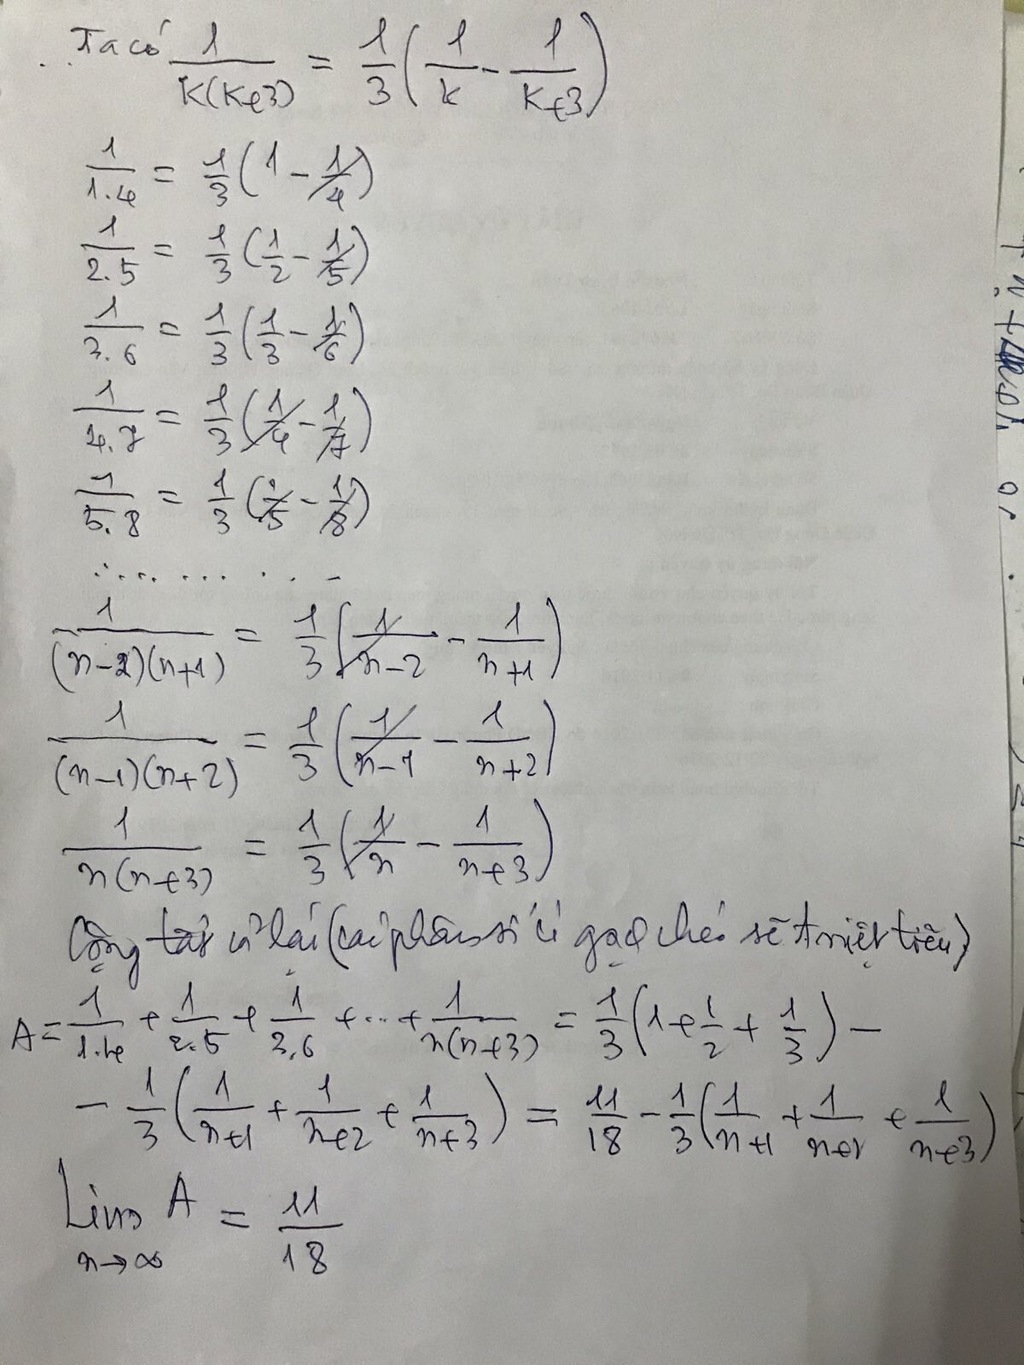 Ta có 1/(k(k+3)) = 1/3 (1/k - 1/(k+3))
1/1.4 = 1/3 (1 - 1/4)
1/2.5 = 1/3 (1/2 - 1/5)
1/3.6 = 1/3 (1/3 - 1/6)
1/4.7 = 1/3 (1/4 - 1/7)
1/5.8 = 1/3 (1/5 - 1/8)
............
1/((n-2)(n+1)) = 1/3 (1/(n-2) - 1/(n+1))
1/((n-1)(n+2)) = 1/3 (1/(n-1) - 1/(n+2))
1/(n(n+3)) = 1/3 (1/n - 1/(n+3))
Cộng tất cả lại (các phân số có gạch chéo sẽ triệt tiêu)
A = 1/1.4 + 1/2.5 + 1/3.6 + ... + 1/(n(n+3)) = 1/3 (1 + 1/2 + 1/3) -
- 1/3 (1/(n+1) + 1/(n+2) + 1/(n+3)) = 11/18 - 1/3 (1/(n+1) + 1/(n+2) + 1/(n+3))
Lim A = 11/18
n→∞